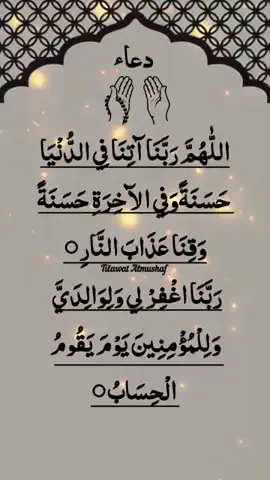 دعاء
اللّٰهُمَّ رَبَّنَا آتِنَا فِي الدُّنْيَا
حَسَنَةً وَفِي الآخِرَةِ حَسَنَةً
وَقِنَا عَذَابَ النَّارِ ○
Tilawat Almushaf
رَبَّنَا اغْفِرْ لِي وَلِوَالِدَيَّ
وَلِلْمُؤْمِنِينَ يَوْمَ يَقُومُ
الْحِسَابُ ○